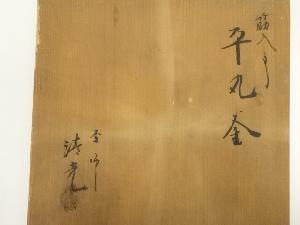 筋入
平丸釜
釜師
清光